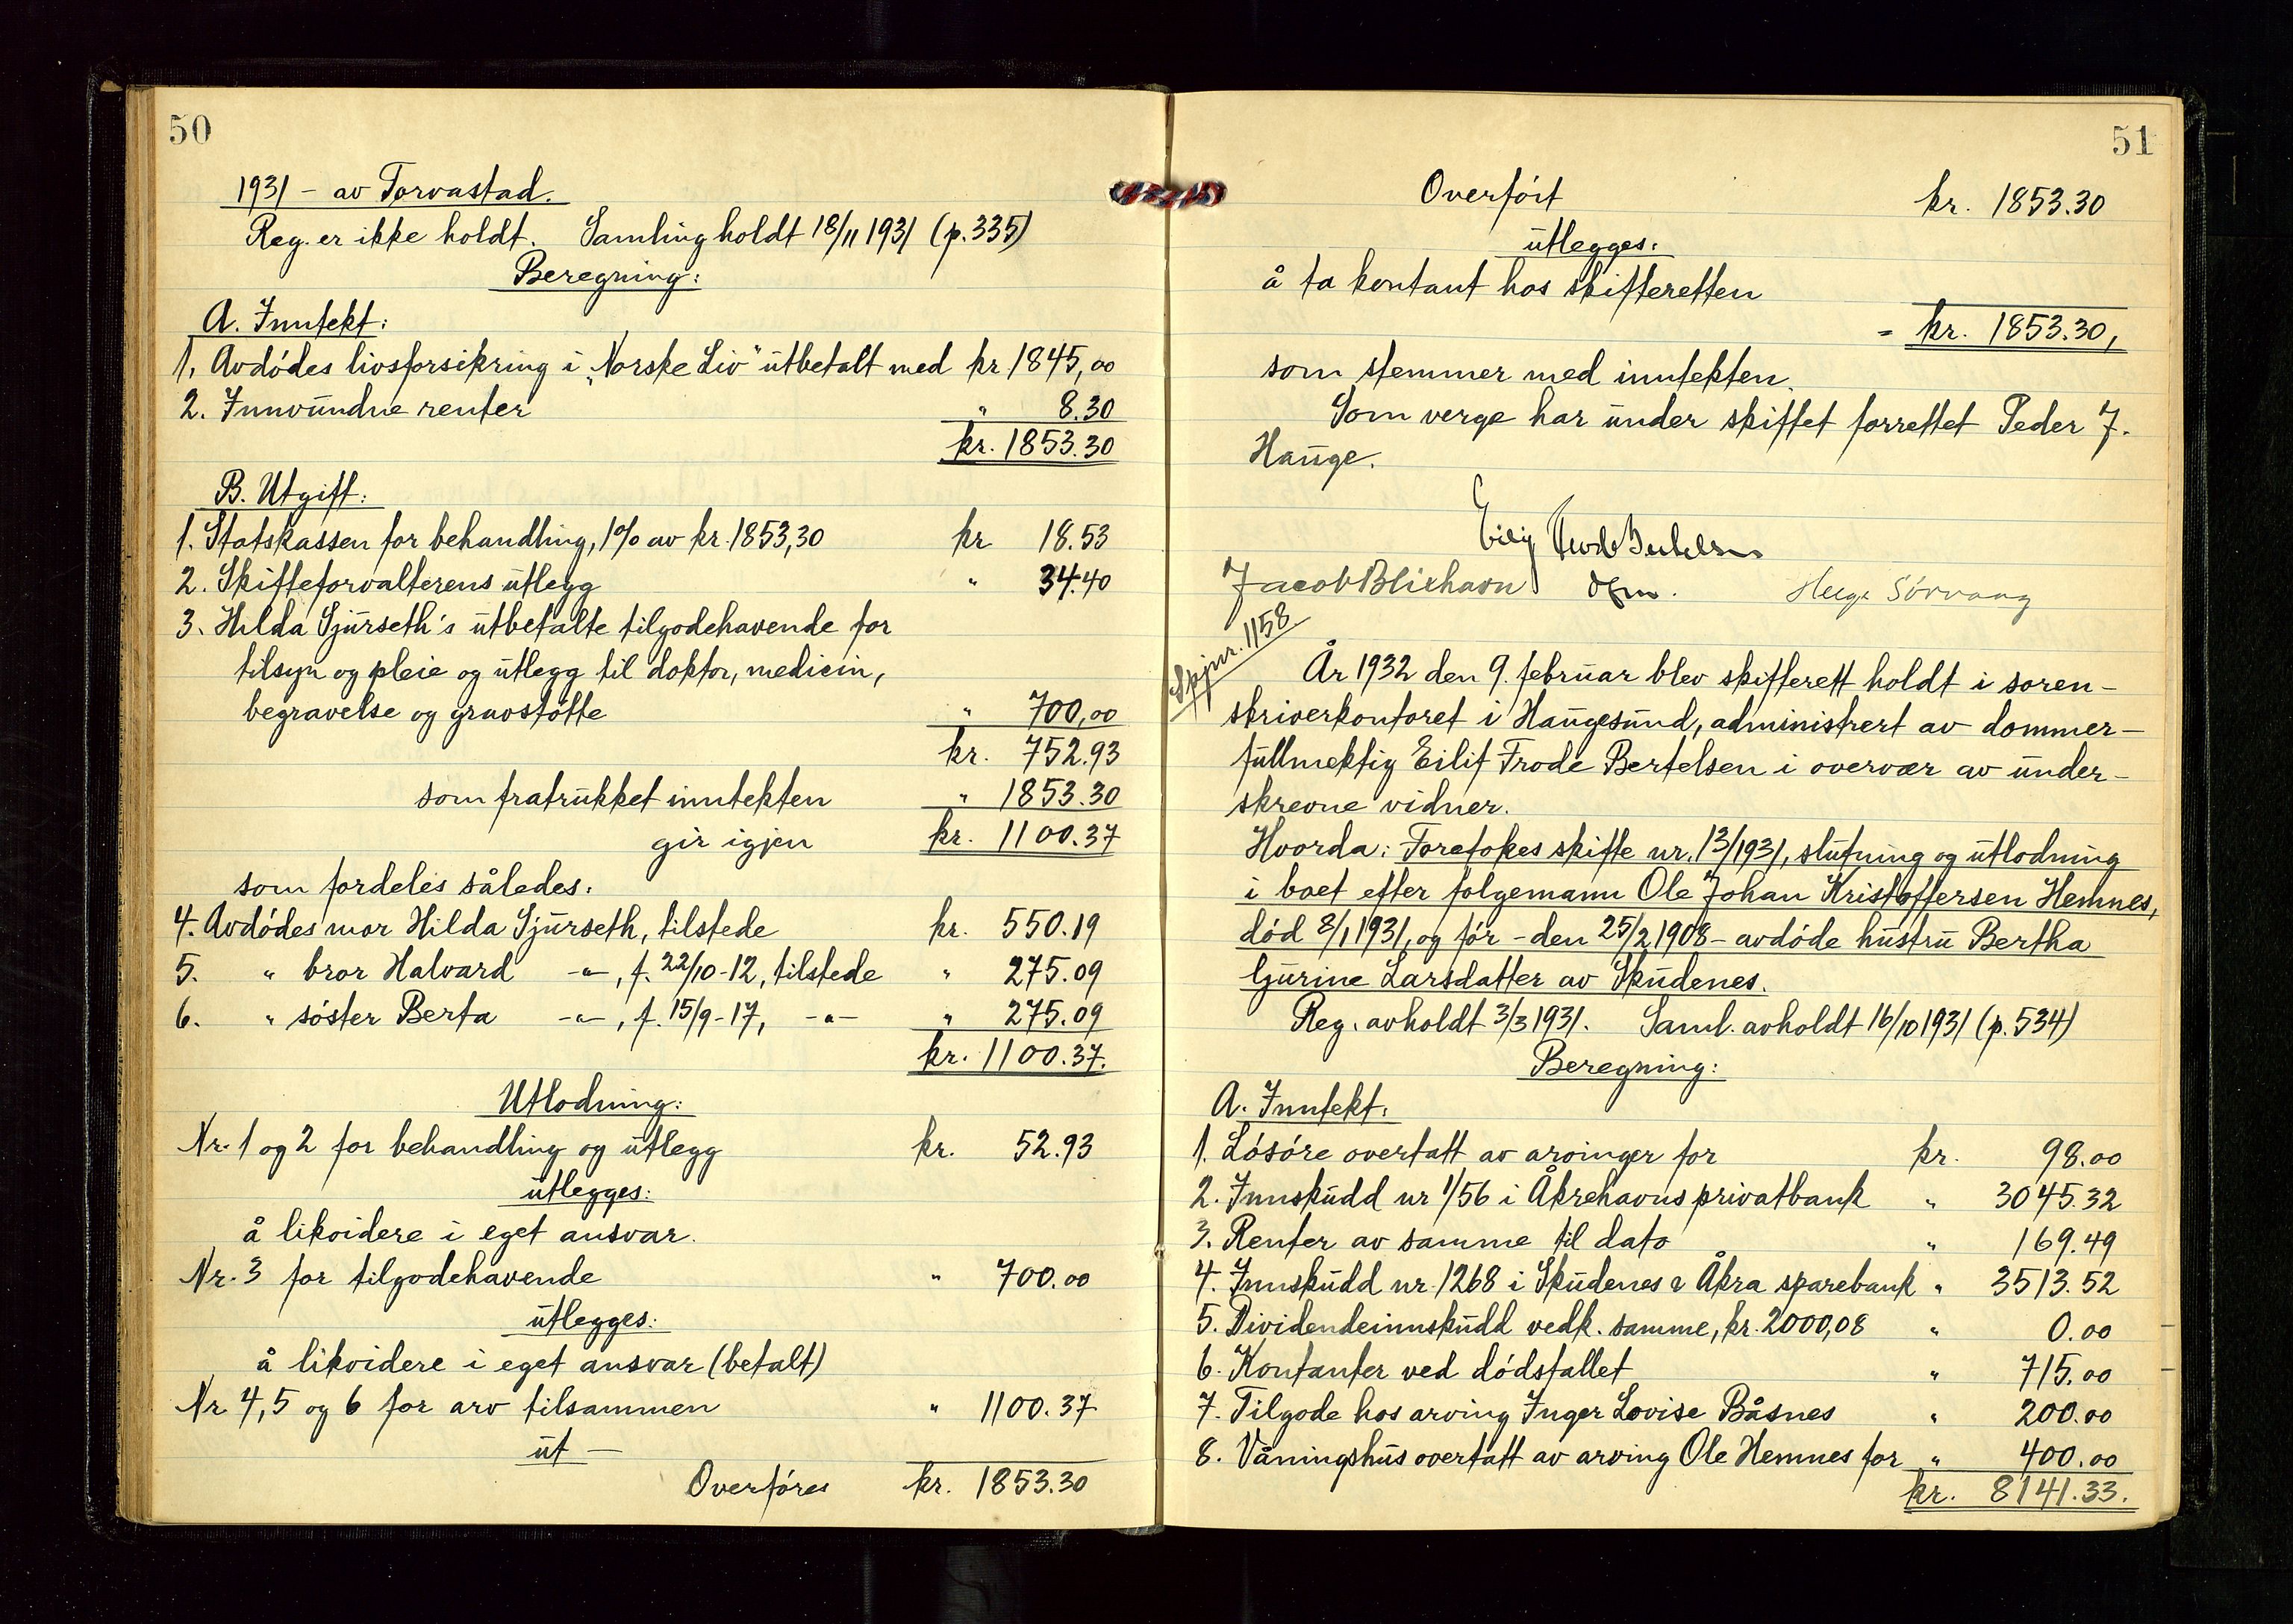 50
1931 – av Torvastad.
Reg. er ikke holdt. Samling holdt 18/11 1931 (p. 335)
Beregning:
A. Inntekt:
1. Avdødes livsforsikring i „Norske Liv" utbetalt med kr 1845,00
2. Innvundne renter " 8.30
kr. 1853.30
B. Utgift:
1. Statskassen for behandling, 1% av kr. 1853,30 kr 18.53
2. Skifteforvalterens utlegg " 34.40
3. Hilda Sjurseth's utbetalte tilgodehavende for
tilsyn og pleie og utlegg til doktor, medicin,
begravelse og gravstøtte " 700,00
kr. 752.93
som fratrukket inntekten " 1853.30
gir igjen kr. 1100.37
som fordeles således:
4. Avdødes mor Hilda Sjurseth, tilstede kr. 550.19
5. " bror Halvard -"-, f. 22/10-12, tilstede " 275.09
6. " søster Berta -"-, f. 15/9-17, -"- " 275.09
kr. 1100.37.
Utlodning:
Nr. 1 og 2 for behandling og utlegg kr. 52.93
utlegges:
å likvidere i eget ansvar.
Nr. 3 for tilgodehavende " 700.00
utlegges:
å likvidere i eget ansvar (betalt)
Nr 4, 5 og 6 for arv tilsammen " 1100.37
ut –
Overføres kr. 1853.30
51
Overført kr. 1853.30
utlegges:
å ta kontant hos skifteretten
= kr. 1853.30,
som stemmer med inntekten.
Som verge har under skiftet forrettet Peder J.
Hauge.
Eilif Frode Bertelsen
Jacob Blixhavn dfm. Helge Sørvang
Skjnr. 1158
År 1932 den 9. februar blev skifterett holdt i soren-
skriverkontoret i Haugesund, administrert av dommer-
fullmektig Eilif Frode Bertelsen i overvær av under-
skrevne vidner.
Hvorda: Foretokes skifte nr. 13/1931, slutning og utlodning
i boet efter følgemann Ole Johan Kristoffersen Hemnes,
død 8/1 1931, og før – den 25/2 1908 – avdøde hustru Bertha
Gurine Larsdatter av Skudenes.
Reg. avholdt 3/3 1931. Saml. avholdt 16/10 1931 (p. 534)
Beregning:
A. Inntekt:
1. Løsøre overtatt av arvinger for kr. 98.00
2. Innskudd nr 1/56 i Åkrehavns privatbank " 3045.32
3. Renter av samme til dato " 169.49
4. Innskudd nr. 1268 i Skudenes & Åkra sparebank " 3513.52
5. Dividendeinnskudd vedk. samme, kr. 2000,08 " 0.00
6. Kontanter ved dødsfallet " 715.00
7. Tilgode hos arving Inger Lovise Båsnes " 200.00
8. Våningshus overtatt av arving Ole Hemnes for " 400.00
kr. 8141.33.